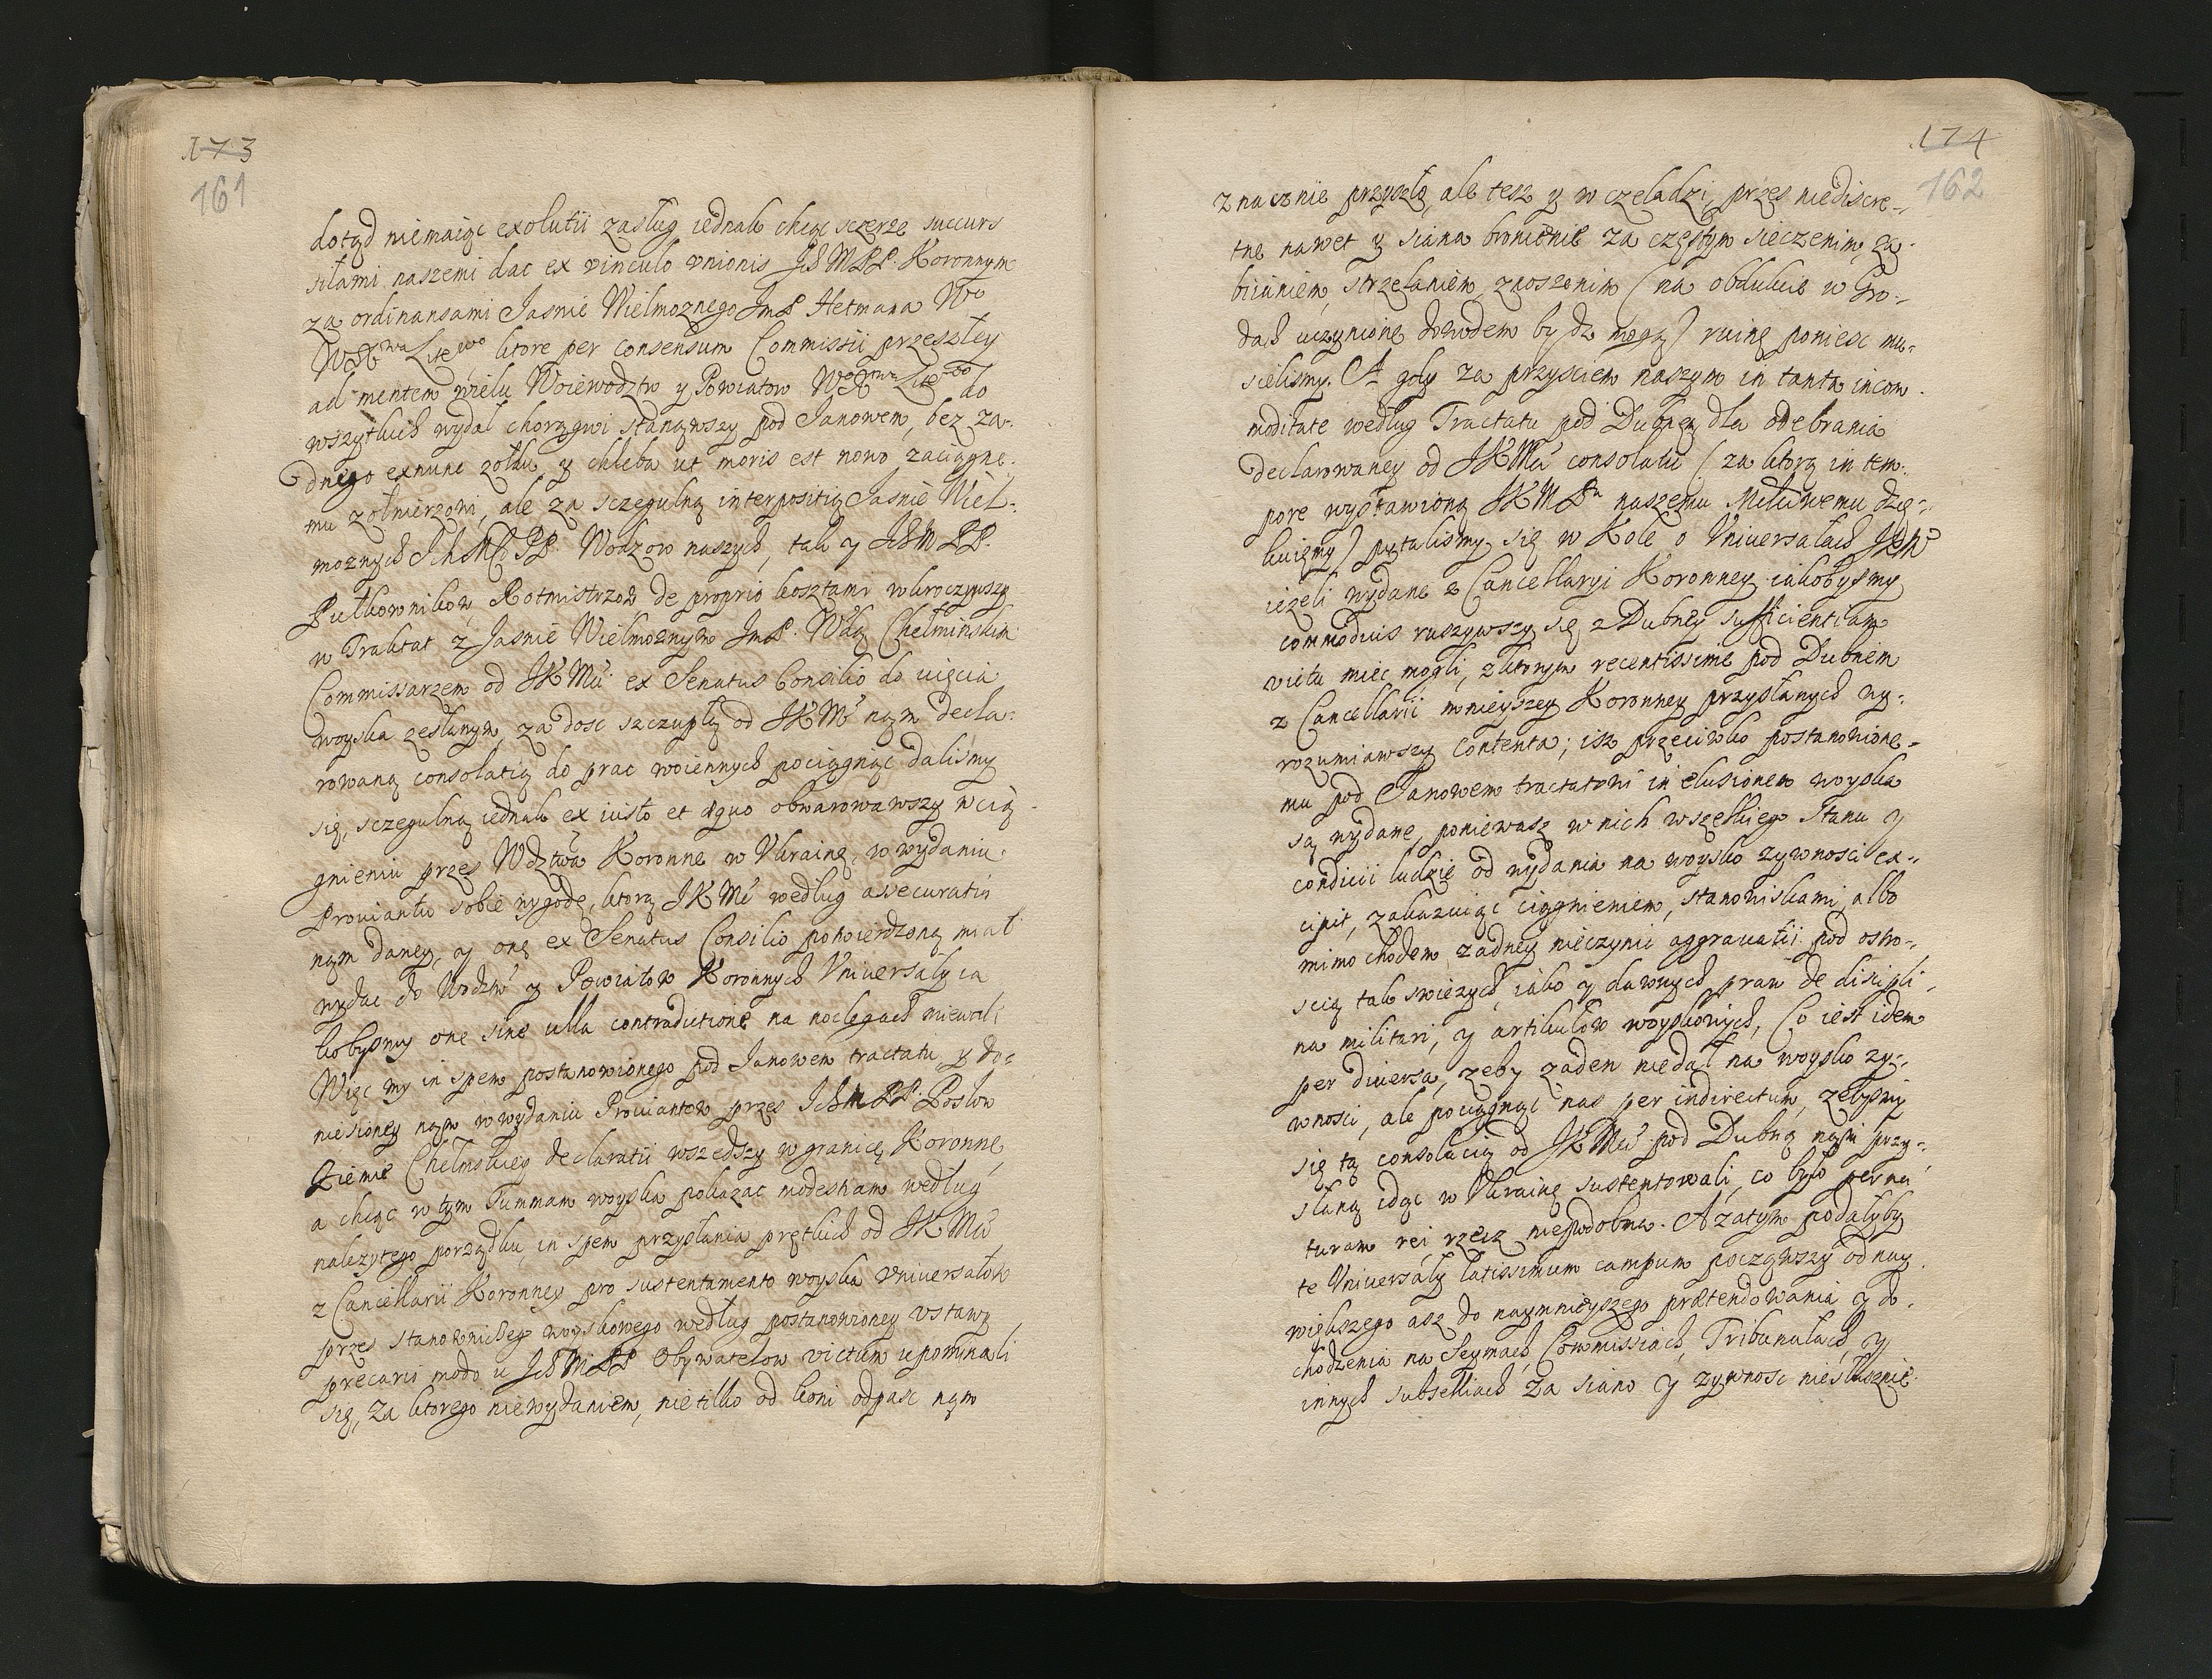 173
161
dotąd niemaiąc exolutii zasług iednak chcąc sczerze succurs
siłami naszemi dac ex vinculo vnionis JchMPP. Koronnym
za ordinansami Jasnie Wielmoznego JmP Hetmana Wo
WXwa Litewo ktore per consensum Commissii przeszłey
ad mentem wielu Woiewodztw y Powiatow WoXtwa Litewo do
wszytkich wydał chorągwi stanąwszy pod Janowem, bez za-
dnego exnunc zołdu y chleba ut moris est nowo zaciągne-
mu zołnierzowi, ale za sczegulną interpositią Jasnie Wiel-
moznych Jchmć PP. Wodzow naszych, tak y JchMPP.
Pułkownikow, Rotmistrzow de proprio kosztami wkroczywszy
w Traktat z Jasnie Wielmoznym JmP. Wdą Chełminskim
Commissarzem od JKMći ex Senatus Consilio do uięcia
woyska zesłanym, za dosc szczupłą od JKMć nąm decla-
rowaną consolatią do prac woiennych pociągnąc dalismy
się, sczegulną iednak ex iusto et æquo obwarowawszy w cią-
gnieniu przes Wdztwa Koronne w Ukrainę, w wydaniu
Prowiantu sobie wygodę, ktorą JKMć według assecuratii
nąm daney, y onę ex Senatus Consilio potwierdzoną miał
wydac do Wodztw y Powiatow Koronnych Vniversały ia
kobysmy one sine ulla contradictione na noclegach miewali
Więc my in spem postanowionego pod Janowem tractatu, y do-
niesioney nąm w wydaniu Prowiantow przes JchmPP. Posłow
Ziemie Chełmskiey declaratii wszedszy w granicę Koronne,
a chcąc w tym Summam woyska pokazac modestiam według
nalezytego porządku, in spem przysłania prętkich od JKMći
z Cancellarii Koronney pro sustentamento woyska vniversałow
przes stanowniczego woyskowego według postanowioney vstawy
precario modo u JchMPP Obywatelow victum upominali
się, Za ktorego niewydaniem, nie tilko od koni odpasc nąm
174
162
znacznie przyszło, ale tesz y w czeladzi, przes niediscre-
tne nawet y siana bronienie za częstym sieczenim, za-
biianiem, strzelaniem, znoszenim (na obdukcie w Gro-
dach uczynione dowodem bydz mogą) ruinę poniesc mu-
sielismy. A gdy za przysciem naszym in tanta incom-
moditate według Tractatu pod Dubną dla odebrania
declarowaney od JKMći consolatii (za ktorą in tem-
pore wystawioną JKMPu naszemu Miłosciwemu dzię-
kuięmy) pytalismy się w Kole o Vniversałach JKMć
iezeli wydane z Cancellaryi Koronney iakobysmy
commodius ruszywszy się z Dubney sufficientiam
victu miec mogli, z ktorym recentissime pod Dubnem
z Cancellarii mnieyszey Koronney przysłanych wy-
rozumiawszy Contenta; isz przeciwko postanowione-
mu pod Janowem tractatowi in elusionem woyska
są wydane, poniewasz w nich wszelkiego Stanu y
condicii ludzie od wydania na woysko zywnosci ex-
cipit, zakazuiąc ciągnieniem, stanowiskami, albo
mimo chodem zadney nieczynic aggravatii pod ostro-
scią tak swiezych, iako y dawnych praw de discipli-
na militari, y artikułow woyskowych, Co iest idem
per diversa, zeby zaden niedał na woysko zy-
wnosci, ale pociągnąc nas per indirectum, zebysmy
się tą consolacią od JKMći pod Dubną nąm przy-
słaną idąc w Ukrainę sustentowali, co było per na-
turam rei rzecz niepodobna. A zatym podałyby
te Vniversały latissimum campum począwszy od nay
większego asz do naymnieyszego prætendowania y do-
chodzenia na Seymach, Commissiach, Tribunałach, y
innych subselliach za siano y zywnosc niesłusznie